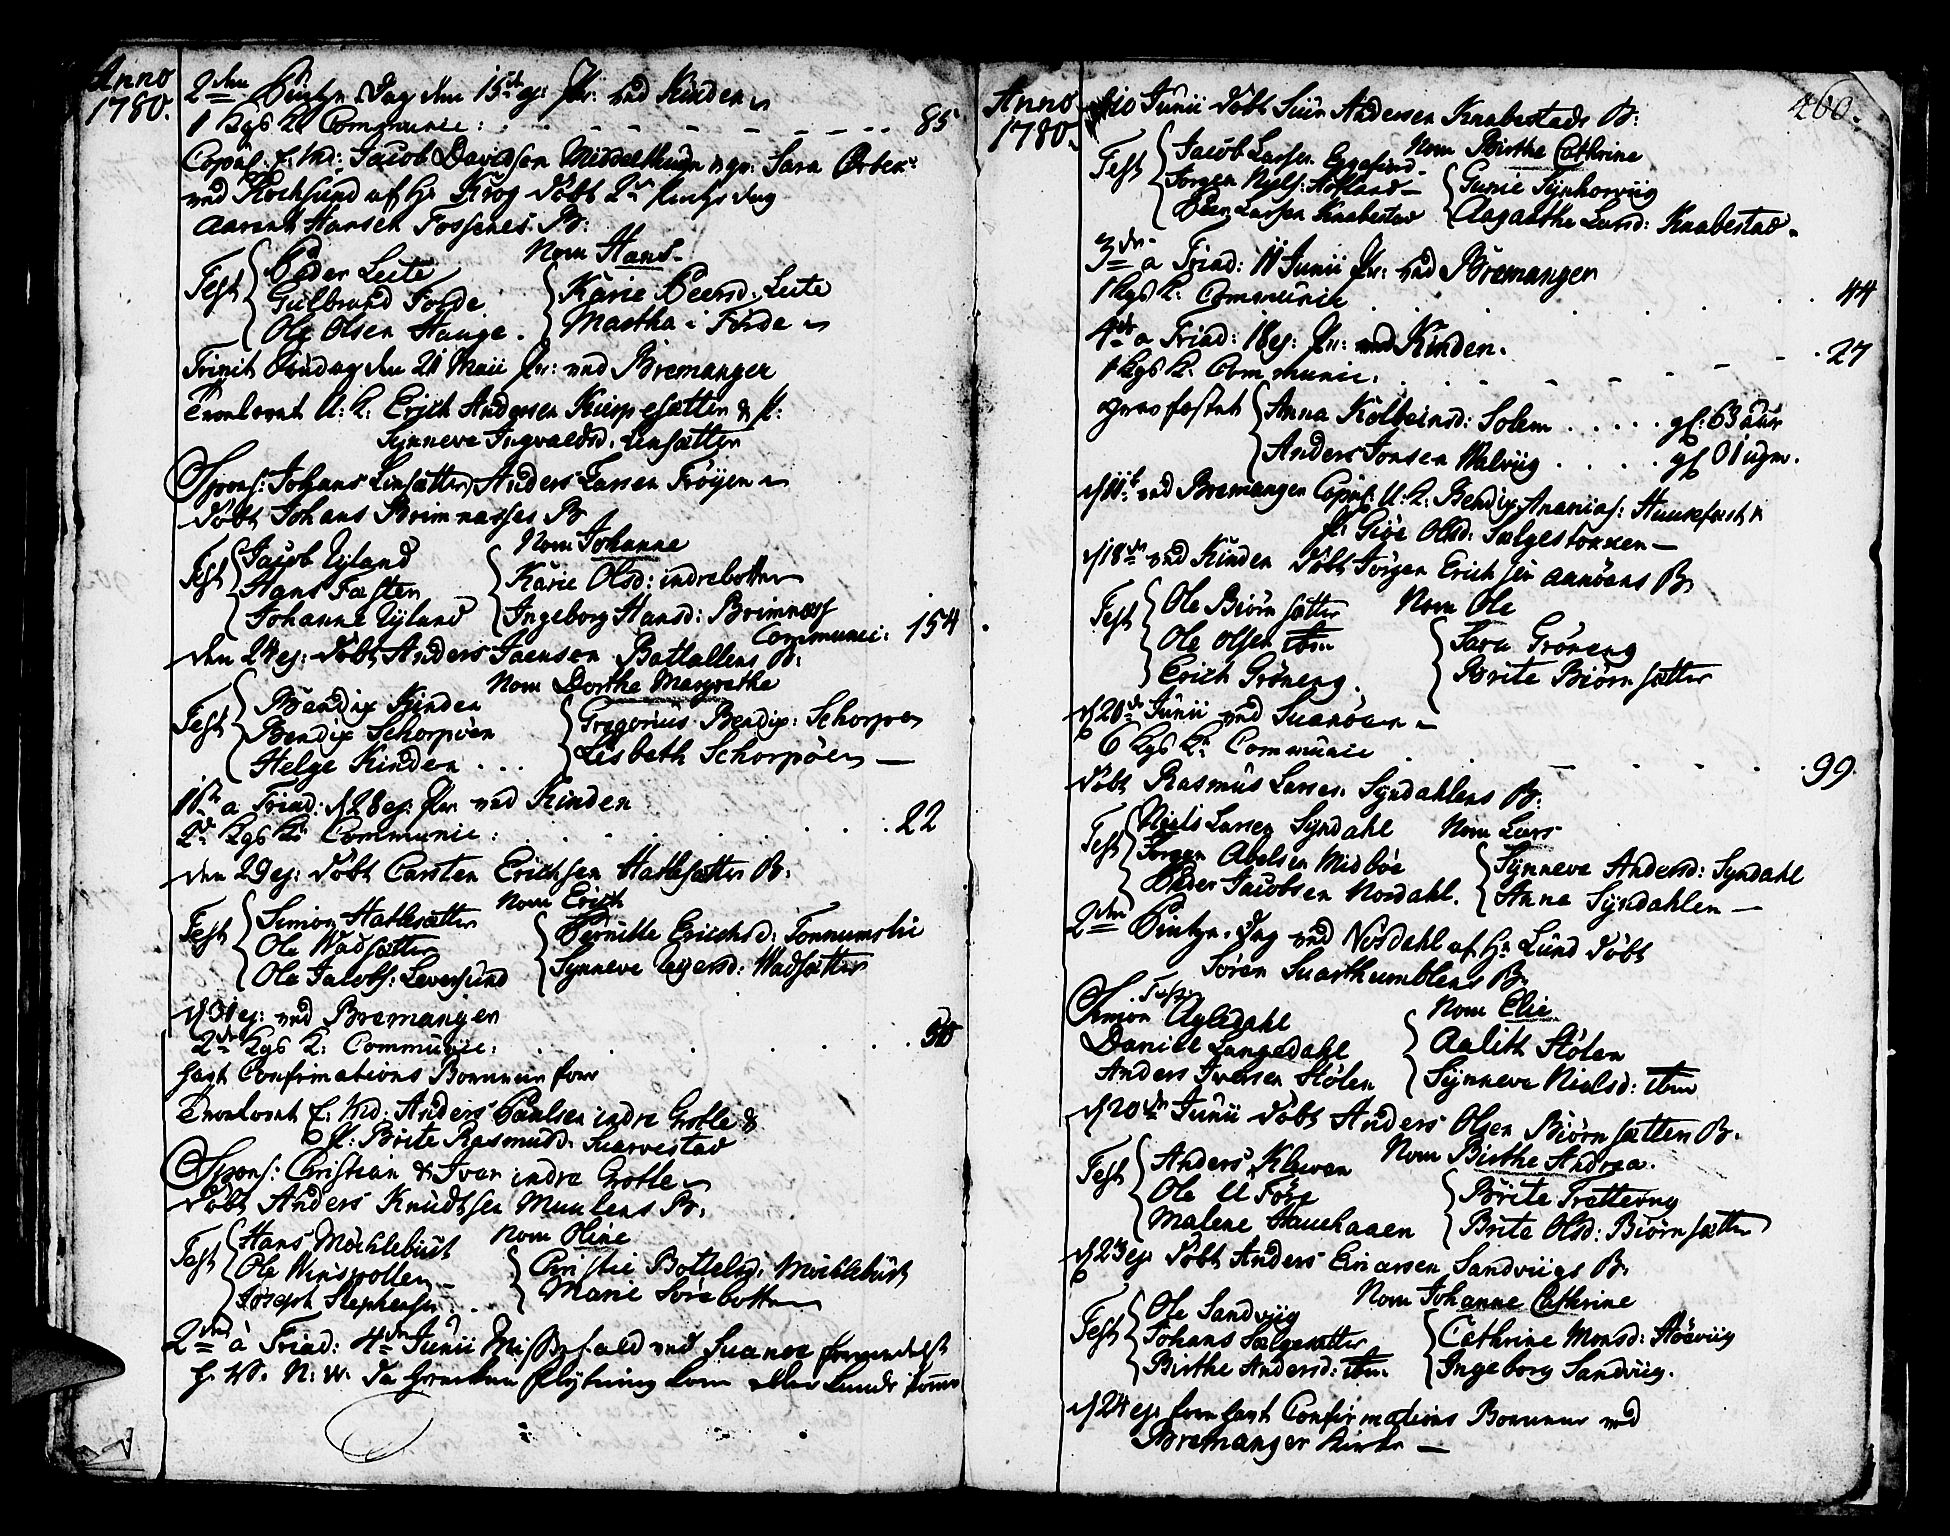 Anno
1780.
2den Pintze. Dag den 15de ej: Pr: ved Kinden
1 Kgs K. Communic: . . . 85
Copul: E. Md: Jacob Davidsen Middelthun & pr: Sara Orben:
ved Rochsund af Hr Krog döbt 2n Pintze dag
Aarent Hansen Fossenes B:
Nom Hans
Test Peder Leite
Gulbrand Förde
Ole Olsen Hauge.
Karie Peersd: Leite
Martha i Förde
Trinit Söndag den 21 Maii Pr: ved Bremanger
Trolovet U: K: Erich Andersen Kiippesætter & P:
Synneve Ingvaldsd: Linsætter
Spons: Johans Linsætter, Anders Larsen Fröyen
Döbt Johans Brimnæsses B
Nom Johanne
Test Jacob Nyland
Hans Fasten
Johanne Nyland
Karie Olsd: indrebotten
Ingeborg Hansd: Brimnæss
Communic: 154
den 24 ej: döbt Anders Jaensen Battallens B:
Nom Dorthe Margrethe
Test Bendix Kinden
Bendix Schorpöen
Helge Kinden . . .
Gregorius Bendix: Schorpöen
Lisbeth Schorpöen
1ste a Trind: d 28 ej: Pr. ved Kinden
2de Kgs K: Communic: . . . 22
den 29 ej: döbt Carsten Erichsen Hatlesætter B:
Nom Erich
Test Simon Hatlesætter
Ole Wadsætter
Ole Jacobs: Leversund
Pernille Erichsd: Tonnumslie
Synneve Ejersd: Wadsætter
d 31 ej: ved Bremanger
2de Kgs K: Communic: . . .
fast Confirmations
Trolovet E. Md: Anders Paulsen indre Grotle &
P: Brite Rasmusd: Suarvestad
Spons: Christian & Iver indre Grotle
Döbt Anders Knudtsen Muulens B.
Nom Oline
Test Hans Möchlebust
Ole Nispollen
Joseph Stephensen . .
Christie Bottelsd: Möchlebust
Marie Sörebotten
2den à Trind: 4de Junii Missefald ved Suanöe formedelst
H. W. N: W. da
Anno
1780.
460.
d 10 Junii döbt Siur Andersen Knabestads B:
Nom Birthe Cathrine
Test Jacob Larsen Eggesund
Jörgen Nyels: Höfland
Peer Larsen Knabestad
Gunie Synhorviig
Aagaathe Larsd: Knabestad
3de a Trind: 11 Junii Pr: ved Bremanger
1 Kgs K: Communic . . . 44
4de a Trind: 18 ej: Pr: ved Kinden.
1 Kgs K: Communic: . . . 27
Jordfæstet Anna Kolbeinsd: Solem . . . gl: 63 aar
Anders Jonsen Walviig . . . gl 01 ugr.
d 11te ved Bremanger Copul: U: K: Bendix Ananias: Huusefæst &
P: Giöe Olsd: Sælgestokken
d 18de ved Kinden döbt Jörgen Erichsen Aanöens B
Nom Ole
Test Ole Biörnsætter
Ole Olsen ibm
Erich Gröneng.
Sara Gröneng
Brite Biörnsætter
d 20de Junii ved Suanöen
6 Kgs K: Communic . . . 99.
Döbt Rasmus Larsen Syndahlens B:
Nom Lars
Test Niels Larsen Syndahl
Jörgen Abelsen Midböe
Peder Jacobsen Nordahl.
Synneve Andersd: Syndahl
Anna Syndahlen
2den Pintze. Dag ved Nordahl af Hr Lund döbt
Sören Suarthumblens B.
Test:
Nom Elie
Simon Aglsdahl
Daniel Langedahl
Anders Iversen Stölen
Aalith Stölen
Synneve Nielsd: ibm
d 20de Junii döbt Anders Olsen Biörnsætters B.
Nom Birthe Andrea.
Test Anders Kleven
Ole U Före
Malene Hauehagen
Brite Tretteng
Brite Olsd: Biörnsætter
d 23 ej. döbt Anders Einersen Sandviigs B.
Nom Johanne Cathrine
Test Ole Sandviig
Johans Sælgesætter
Birthe Andersd: ibm
Cathrine Monsd: Höeviig
Ingeborg Sandviig.
d 24 ej. Confirmations ved
Bremanger Kirke